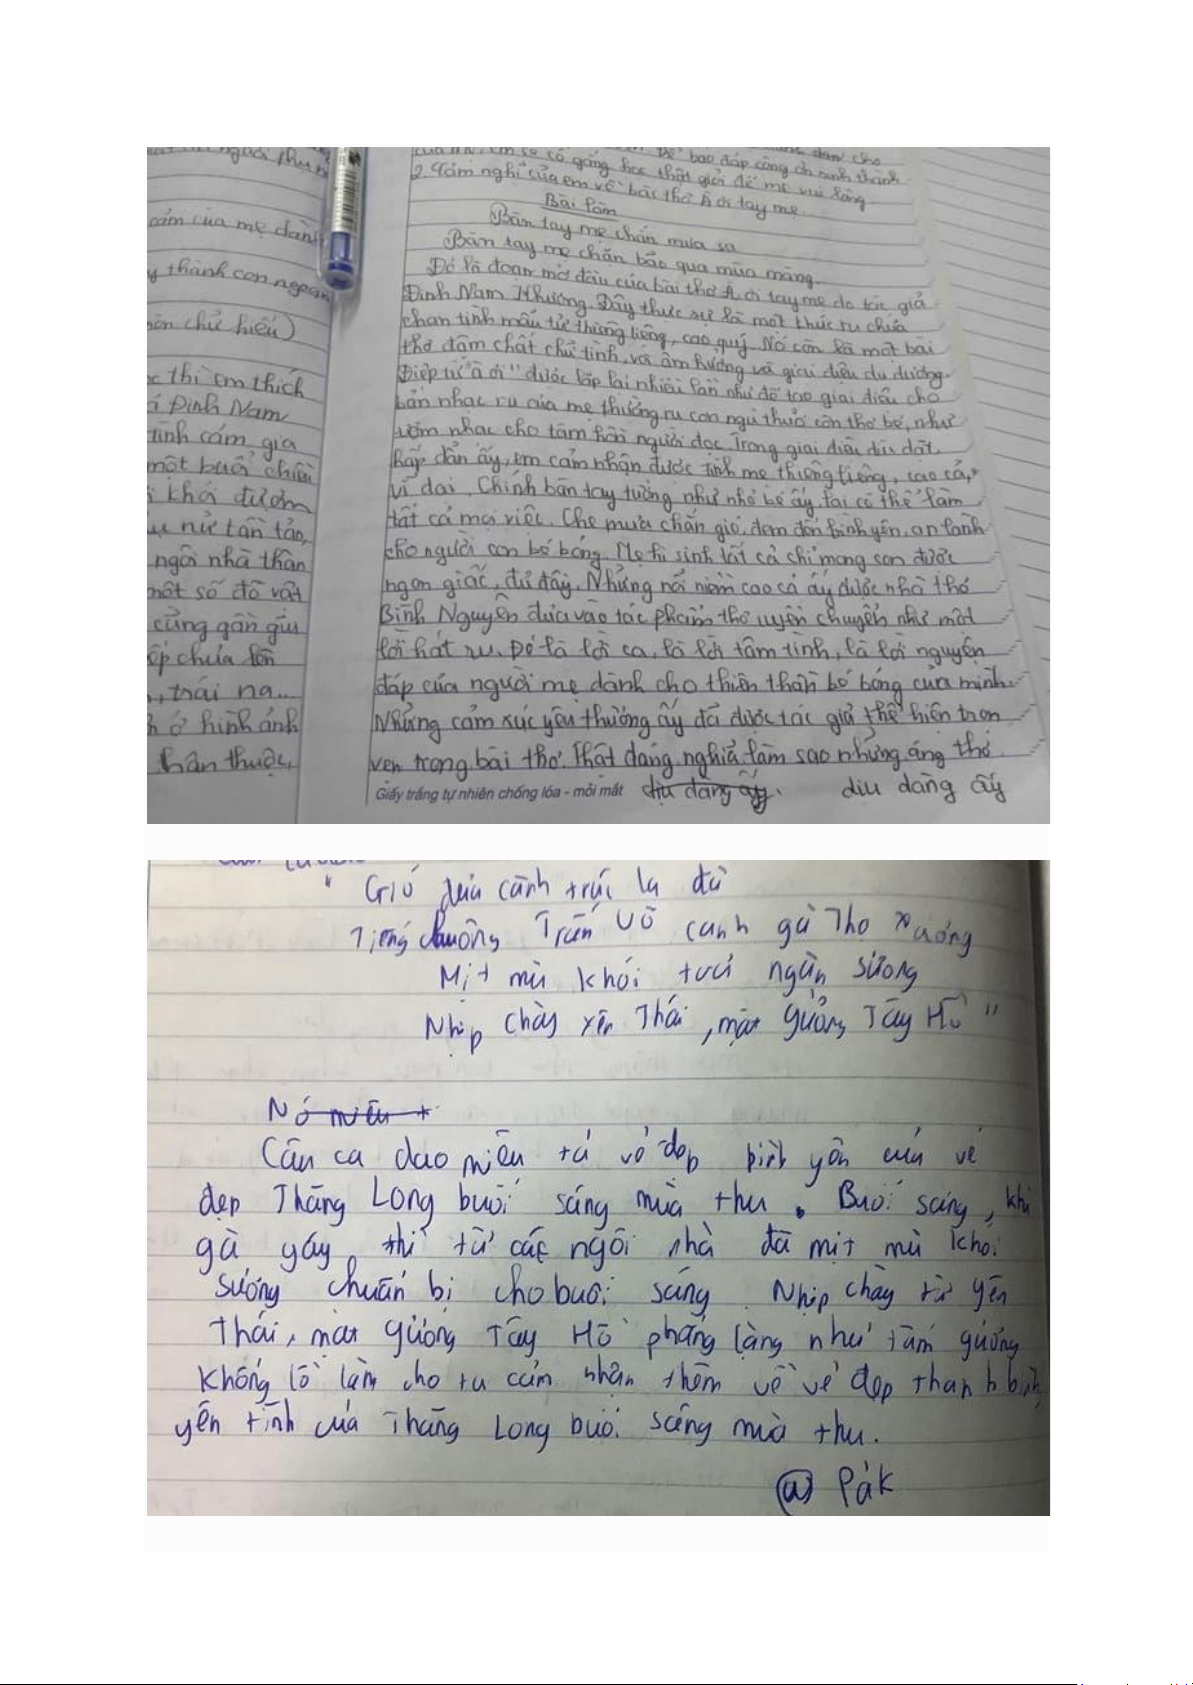 cảm của mẹ dành
thành con ngoan
chủ hiếu)
thì em thích
Đinh Nam
tình cảm gia
một buổi chiều
khói đượm
nữ tần tảo,
ngôi nhà thân
một số đồ vật
cũng gần gũi
chứa lên
, trái na...
ở hình ảnh
thân thuộc,
sẽ cố gắng học thật giỏi để mẹ vui lòng
2. Cảm nghĩ của em về bài thơ À ơi tay mẹ.
Bài làm
Bàn tay mẹ chắn mưa sa
Bàn tay mẹ chắn bão qua mùa màng.
Đó là đoạn mở đầu của bài thơ À ơi tay mẹ do tác giả
Đinh Nam Khương. Đây thực sự là một khúc ru chứa
chan tình mẫu tử thiêng liêng, cao quý. Nó còn là một bài
thơ đậm chất chữ tình, với âm hưởng và giai điệu du dương.
Điệp từ "à ơi" được lặp lại nhiều lần như để tạo giai điệu cho
bản nhạc ru của mẹ thường ru con ngủ thuở còn thơ bé, như
ươm nhạc cho tâm hồn người đọc. Trong giai điệu dìu dặt,
hấp dẫn ấy, em cảm nhận được tình mẹ thiêng liêng, cao cả,
vĩ đại. Chính bàn tay tưởng như nhỏ bé ấy, lại có thể làm
tất cả mọi việc. Che mưa chắn gió, đem đến bình yên, an lành
cho người con bé bỏng. Mẹ hi sinh tất cả chỉ mong con được
ngon giấc, đủ đầy. Những nổi niềm cao cả ấy được nhà thơ
Bình Nguyên đưa vào tác phẩm thơ uyển chuyển như một
lời hát ru. Đó là lời ca, là lời tâm tình, là lời nguyện
đáp của người mẹ dành cho thiên thần bé bỏng của mình.
Những cảm xúc yêu thương ấy đã được tác giả thể hiện trọn
vẹn trong bài thơ. Thật đáng nghĩa làm sao những áng thơ
Giấy trắng tự nhiên chống lóa - mỏi mắt dịu dàng ấy. dịu dàng ấy
" Gió đưa cành trúc la đà
Tiếng chuông Trấn Võ canh gà Thọ Xương
Mịt mù khói tưả ngàn sương
Nhịp chày Yên Thái, mặt gương Tây Hồ "
Nó miêu t
Câu ca dao miêu tả vẻ đẹp bình yên của vẻ
đẹp Thăng Long buổi sáng mùa thu. Buổi sáng, khi
gà gáy, thì từ các ngôi nhà đã mịt mù khói
sương chuẩn bị cho buổi sáng. Nhịp chày từ Yên
Thái, mặt gương Tây Hồ phẳng lặng như tấm gương
khổng lồ làm cho ta cảm nhận thêm về vẻ đẹp thanh bình
yên tĩnh của Thăng Long buổi sáng mùa thu.